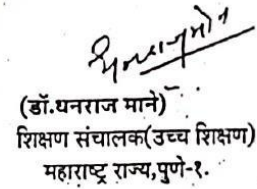 (डॉ.धनराज माने)
शिक्षण संचालक(उच्च शिक्षण)
महाराष्ट्र राज्य,पुणे-१.